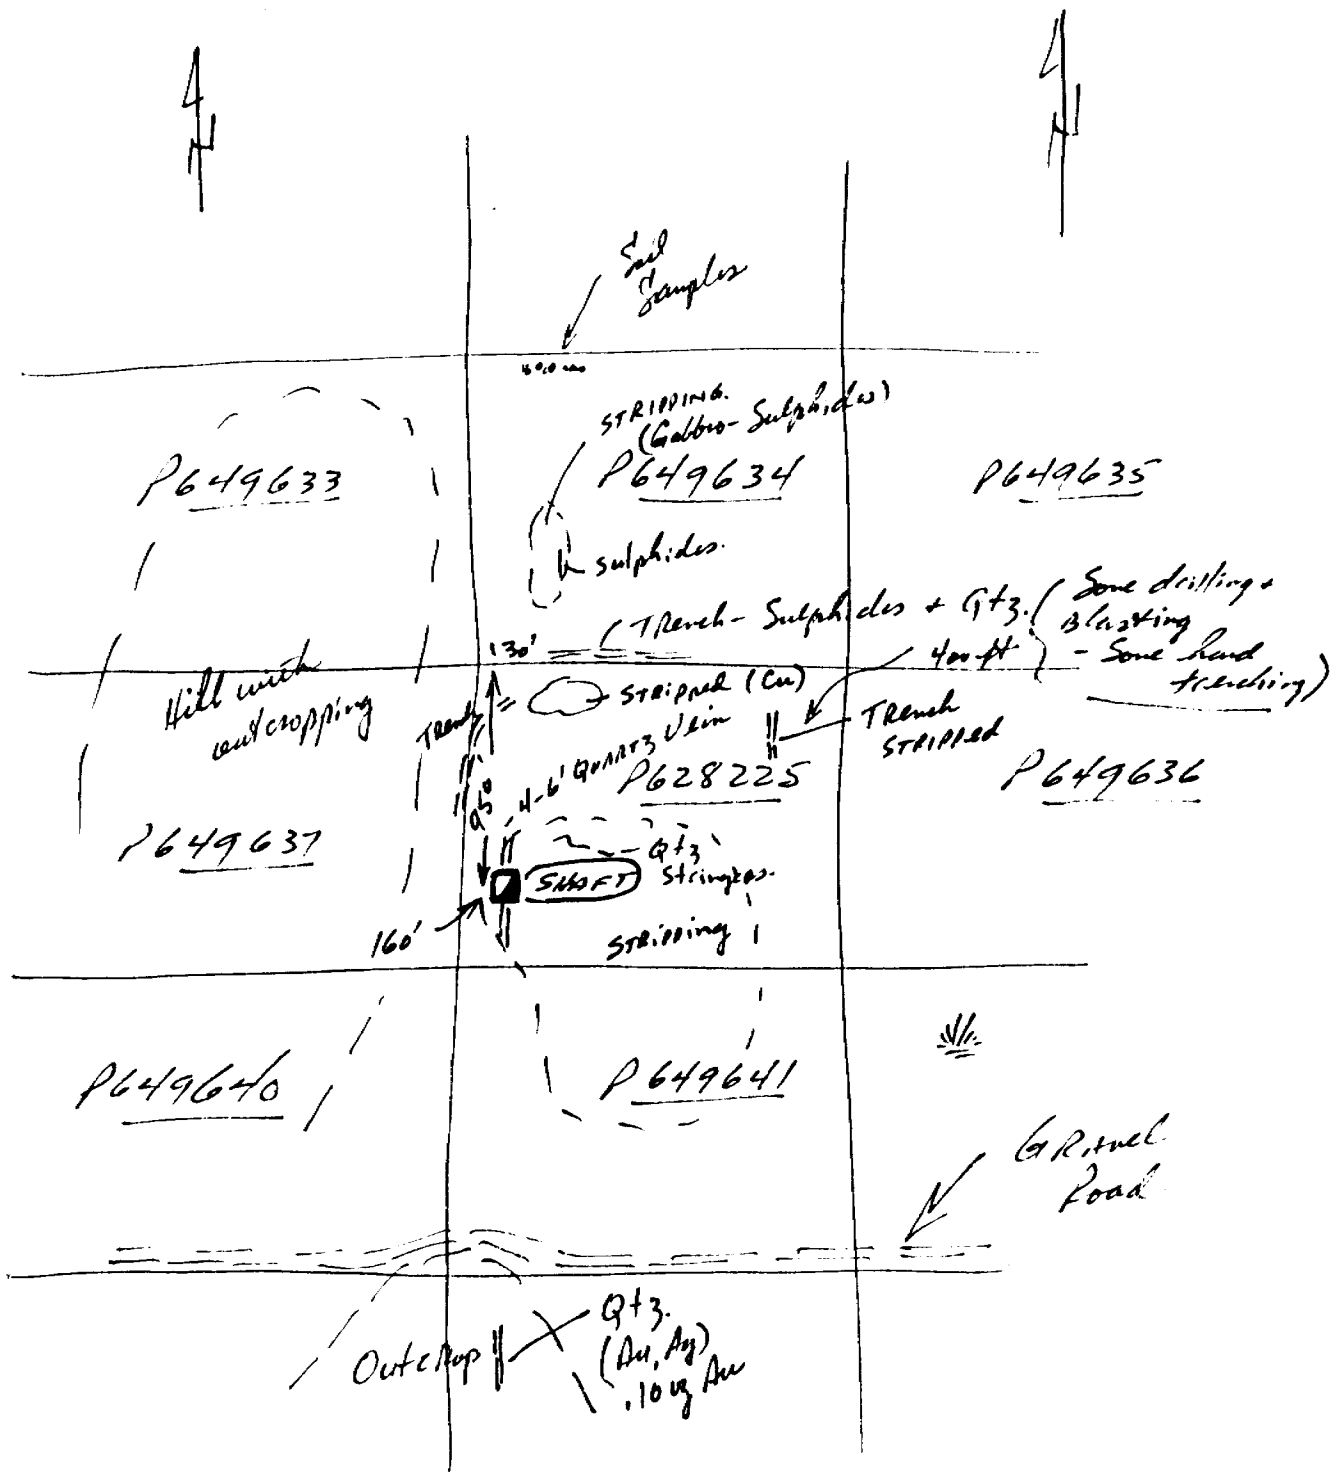 N
N
Soil
Samples
STRIPPING.
(Gabbro-Sulphides)
P649633
P649634
P649635
Sulphides.
Trench- Sulphides + Qtz. (Some drilling +
Blasting
- Some hand
trenching)
130'
400 ft
Hill with
outcropping
Stripped (Cu)
Trench
Trench
STRIPPED
4-6' QUARTZ Vein
P628225
P649636
950
P649637
Qtz
Stringers.
SHAFT
160'
STRIPPING
P649640
P649641
GRAvel
Road
Outcrop
Qtz.
(Au, Ag)
.10 oz Au